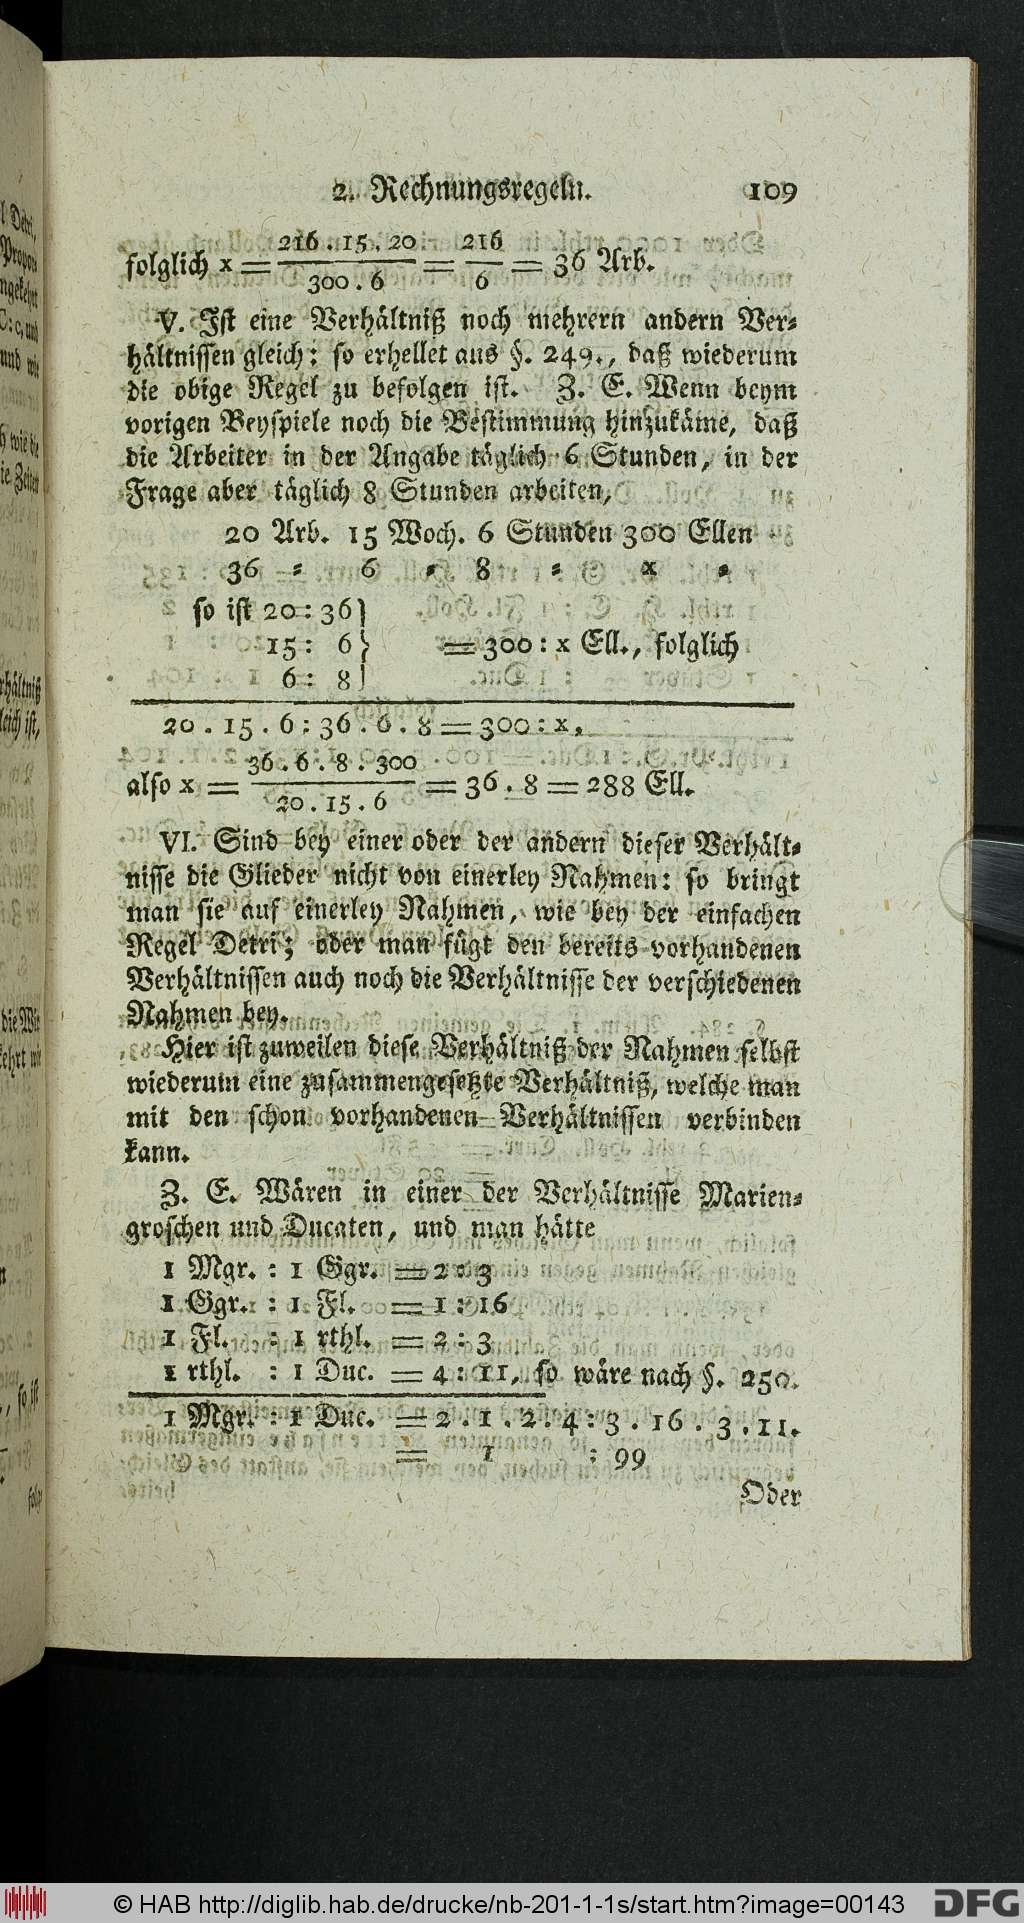 2. Rechnungsregeln. 109
folglich x = 216 . 15 . 20 / 300 . 6 = 216 / 6 = 36 Arb.
V. Ist eine Verhältniß noch mehrern andern Ver-
hältnissen gleich: so erhellet aus §. 249., daß wiederum
die obige Regel zu befolgen ist. Z. E. Wenn beym
vorigen Beyspiele noch die Bestimmung hinzukäme, daß
die Arbeiter in der Angabe täglich 6 Stunden, in der
Frage aber täglich 8 Stunden arbeiten,
20 Arb. 15 Woch. 6 Stunden 300 Ellen
36 - 6 - 8 - x -
so ist 20 : 36 }
15 : 6 } = 300 : x Ell., folglich
6 : 8 }
20 . 15 . 6 : 36 . 6 . 8 = 300 : x,
also x = 36 . 6 . 8 . 300 / 20 . 15 . 6 = 36 . 8 = 288 Ell.
VI. Sind bey einer oder der andern dieser Verhält-
nisse die Glieder nicht von einerley Nahmen: so bringt
man sie auf einerley Nahmen, wie bey der einfachen
Regel Detri; oder man fügt den bereits vorhandenen
Verhältnissen auch noch die Verhältnisse der verschiedenen
Nahmen bey.
Hier ist zuweilen diese Verhältniß der Nahmen selbst
wiederum eine zusammengesetzte Verhältniß, welche man
mit den schon vorhandenen Verhältnissen verbinden
kann.
Z. E. Wären in einer der Verhältnisse Marien-
groschen und Ducaten, und man hätte
1 Mgr. : 1 Ggr. = 2 : 3
1 Ggr. : 1 Fl. = 1 : 16
1 Fl. : 1 rthl. = 2 : 3
1 rthl. : 1 Duc. = 4 : 11, so wäre nach §. 250.
1 Mgr. : 1 Duc. = 2 . 1 . 2 . 4 : 3 . 16 . 3 . 11.
= 1 : 99
Oder
© HAB http://diglib.hab.de/drucke/nb-201-1-1s/start.htm?image=00143
DFG